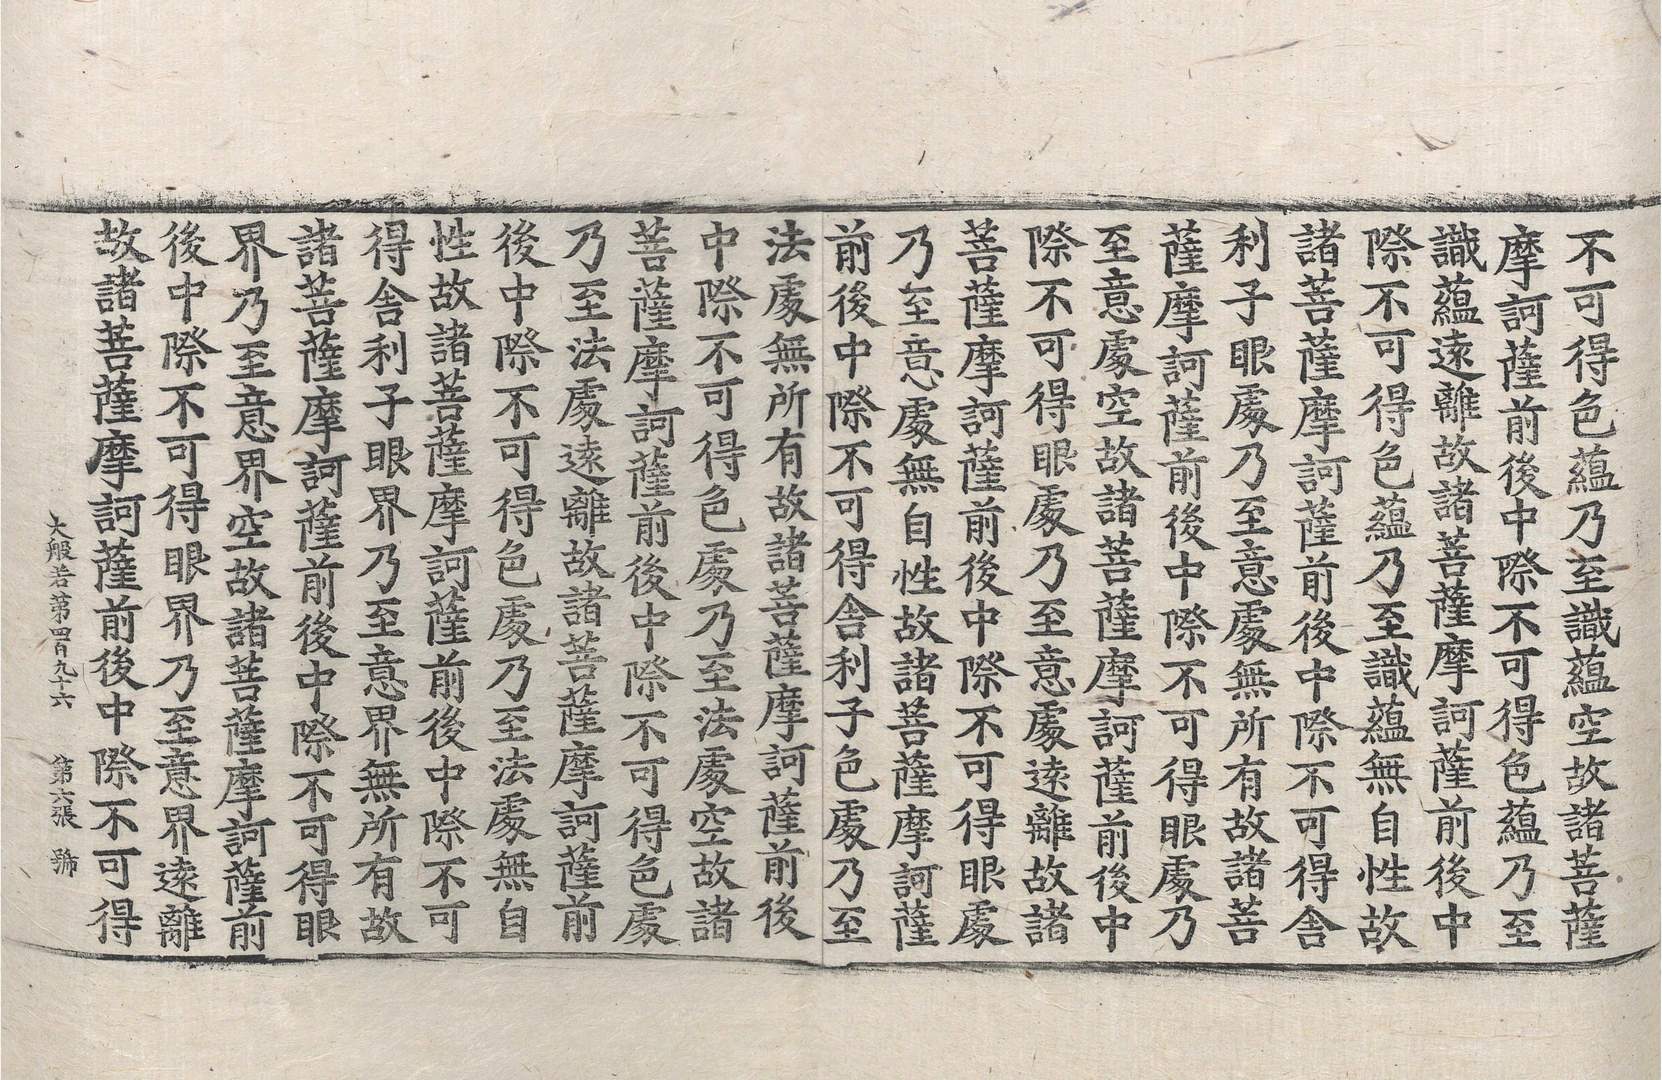 不可得色蘊乃至識蘊空故諸菩薩
摩訶薩前後中際不可得色蘊乃至
識蘊遠離故諸菩薩摩訶薩前後中
際不可得色蘊乃至識蘊無自性故
諸菩薩摩訶薩前後中際不可得舍
利子眼處乃至意處無所有故諸菩
薩摩訶薩前後中際不可得眼處乃
至意處空故諸菩薩摩訶薩前後中
際不可得眼處乃至意處遠離故諸
菩薩摩訶薩前後中際不可得眼處
乃至意處無自性故諸菩薩摩訶薩
前後中際不可得舍利子色處乃至
法處無所有故諸菩薩摩訶薩前後
中際不可得色處乃至法處空故諸
菩薩摩訶薩前後中際不可得色處
乃至法處遠離故諸菩薩摩訶薩前
後中際不可得色處乃至法處無自
性故諸菩薩摩訶薩前後中際不可
得舍利子眼界乃至意界無所有故
諸菩薩摩訶薩前後中際不可得眼
界乃至意界空故諸菩薩摩訶薩前
後中際不可得眼界乃至意界遠離
故諸菩薩摩訶薩前後中際不可得
大般若第四百九十六 第六張 號